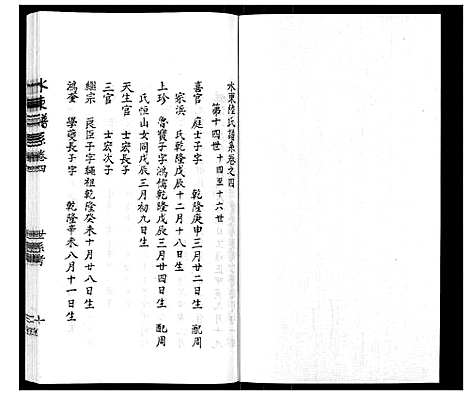 水東陸氏譜系卷之四
第十四世 十四至十六世
喜官 庭士子字 乾隆庚申三月廿二日生 配周
宗浜 氏乾隆戊辰十二月十八日生
上珍 魯寶子字鴻儒乾隆戊辰三月廿四日生 配周
氏恒山女同戊辰三月初九日生
天生官 士宏長子
三官 士宏次子
繼宗 良臣子字繩祖乾隆癸未十月廿八日生
鴻奎 學夔長子字 乾隆辛未八月十一日生
水東譜系卷四